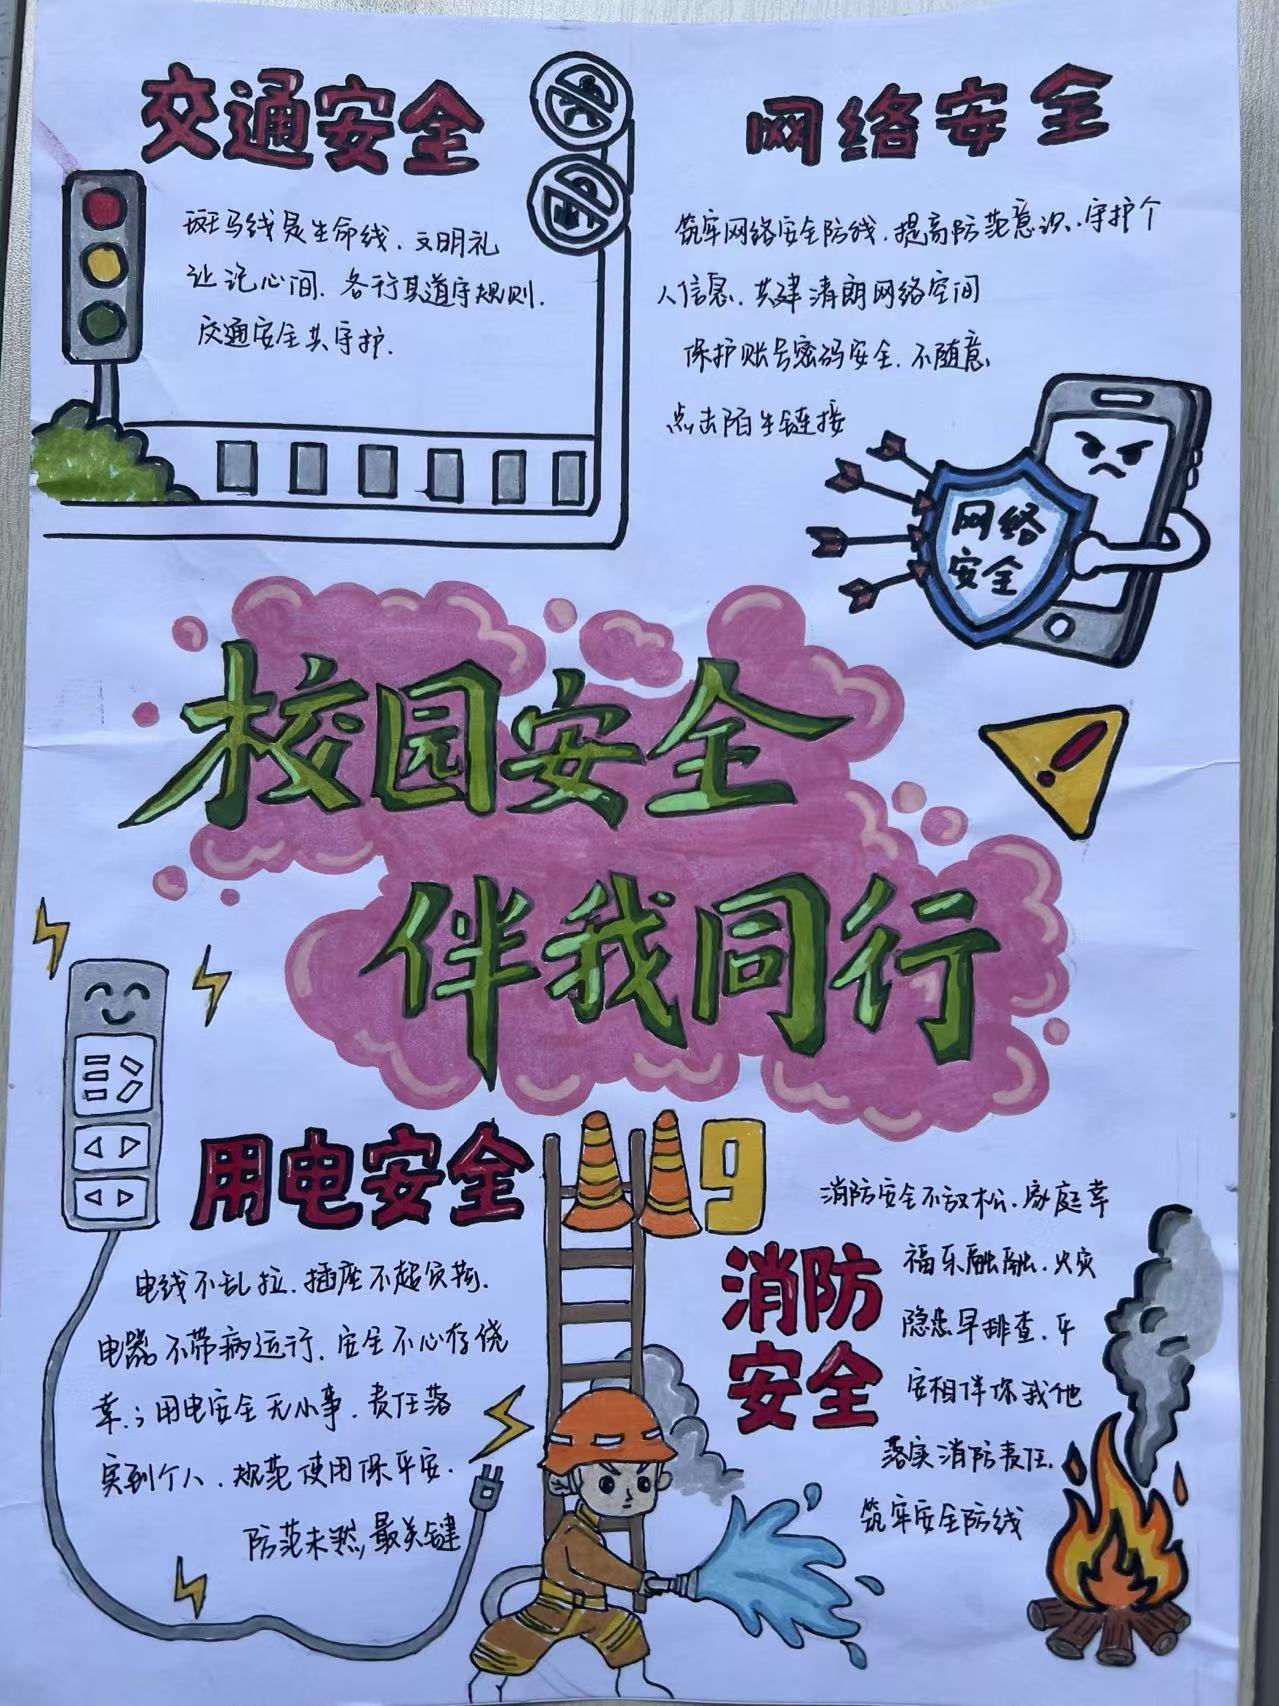 交通安全
斑马线是生命线.文明礼
让记心间.各行其道守规则.
交通安全共守护.
网络安全
筑牢网络安全防线.提高防范意识.守护个
人信息.共建清朗网络空间
保护账号密码安全.不随意
点击陌生链接
网络
安全
校园安全
伴我同行
用电安全
电线不乱拉.插座不超负荷.
电器不带病运行.安全不心存侥
幸;用电安全无小事.责任落
实到个人.规范使用保平安.
防范未然,最关键
119
消防
安全
消防安全不放松.家庭幸
福乐融融.火灾
隐患早排查.平
安相伴你我他
落实消防责任.
筑牢安全防线